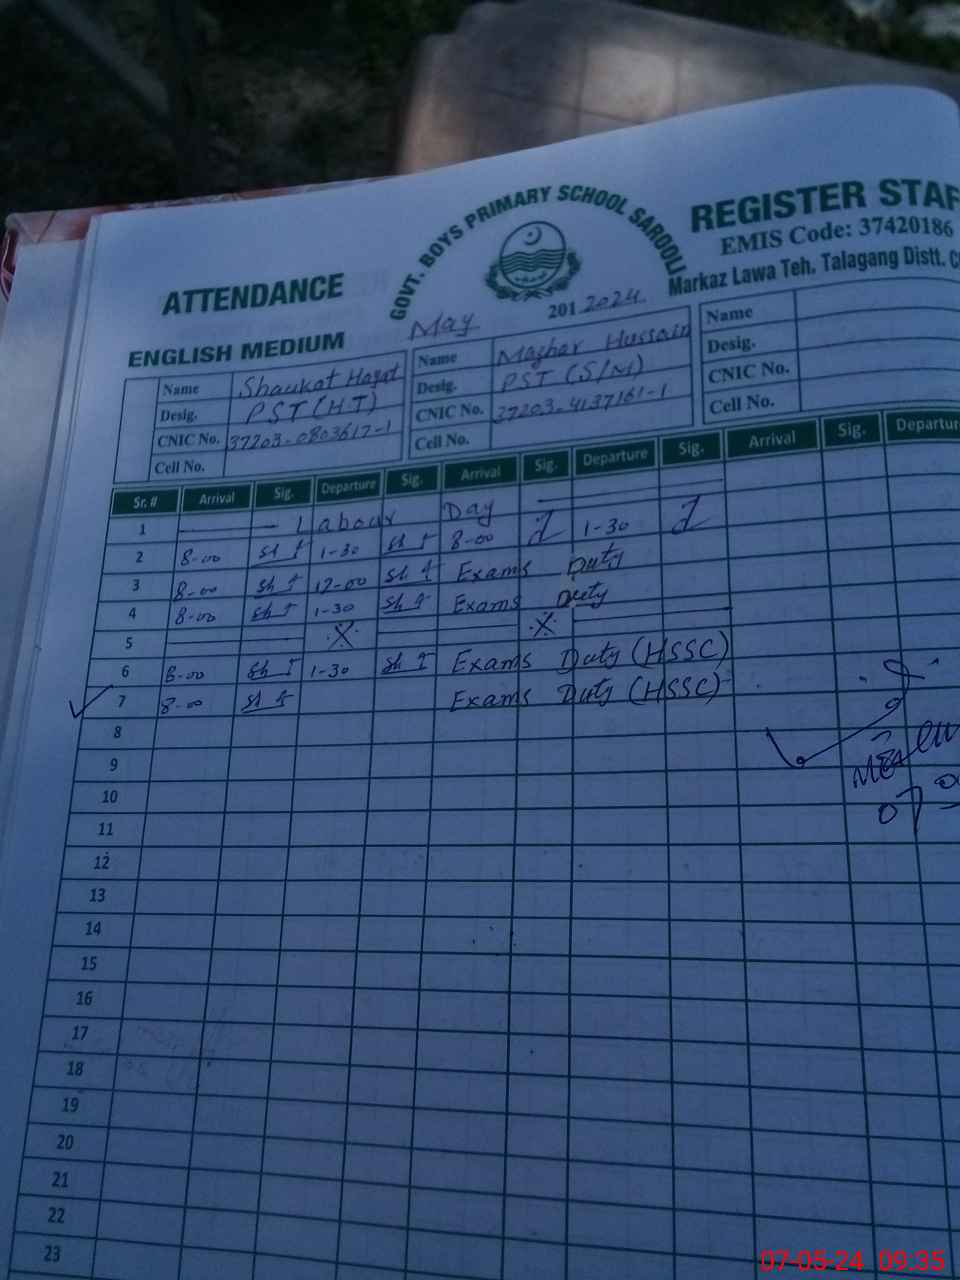 GOVT. BOYS PRIMARY SCHOOL SAROOLI
REGISTER STAF
EMIS Code: 37420186
Markaz Lawa Teh. Talagang Distt. C
ATTENDANCE
ENGLISH MEDIUM
May 201 2024
Name Shaukat Hayat Name Mazhar Hussain Name
Desig. PST (H.T) Desig. PST (S/M) Desig.
CNIC No. 37203-0803617-1 CNIC No. 37203-4137161-1 CNIC No.
Cell No. Cell No. Cell No.
Sr. # Arrival Sig. Departure Sig. Arrival Sig. Departure Sig. Arrival Sig. Departur
1 Labour Day
2 8-00 1-30 8-00 1-30
3 8-00 12-00 Exams Duty
4 8-00 1-30 Exams Duty
5
6 8-00 1-30 Exams Duty (HSSC)
7 8-00 Exams Duty (HSSC)
8
9
10
11
12
13
14
15
16
17
18
19
20
21
22
23
07-05-24 09:35